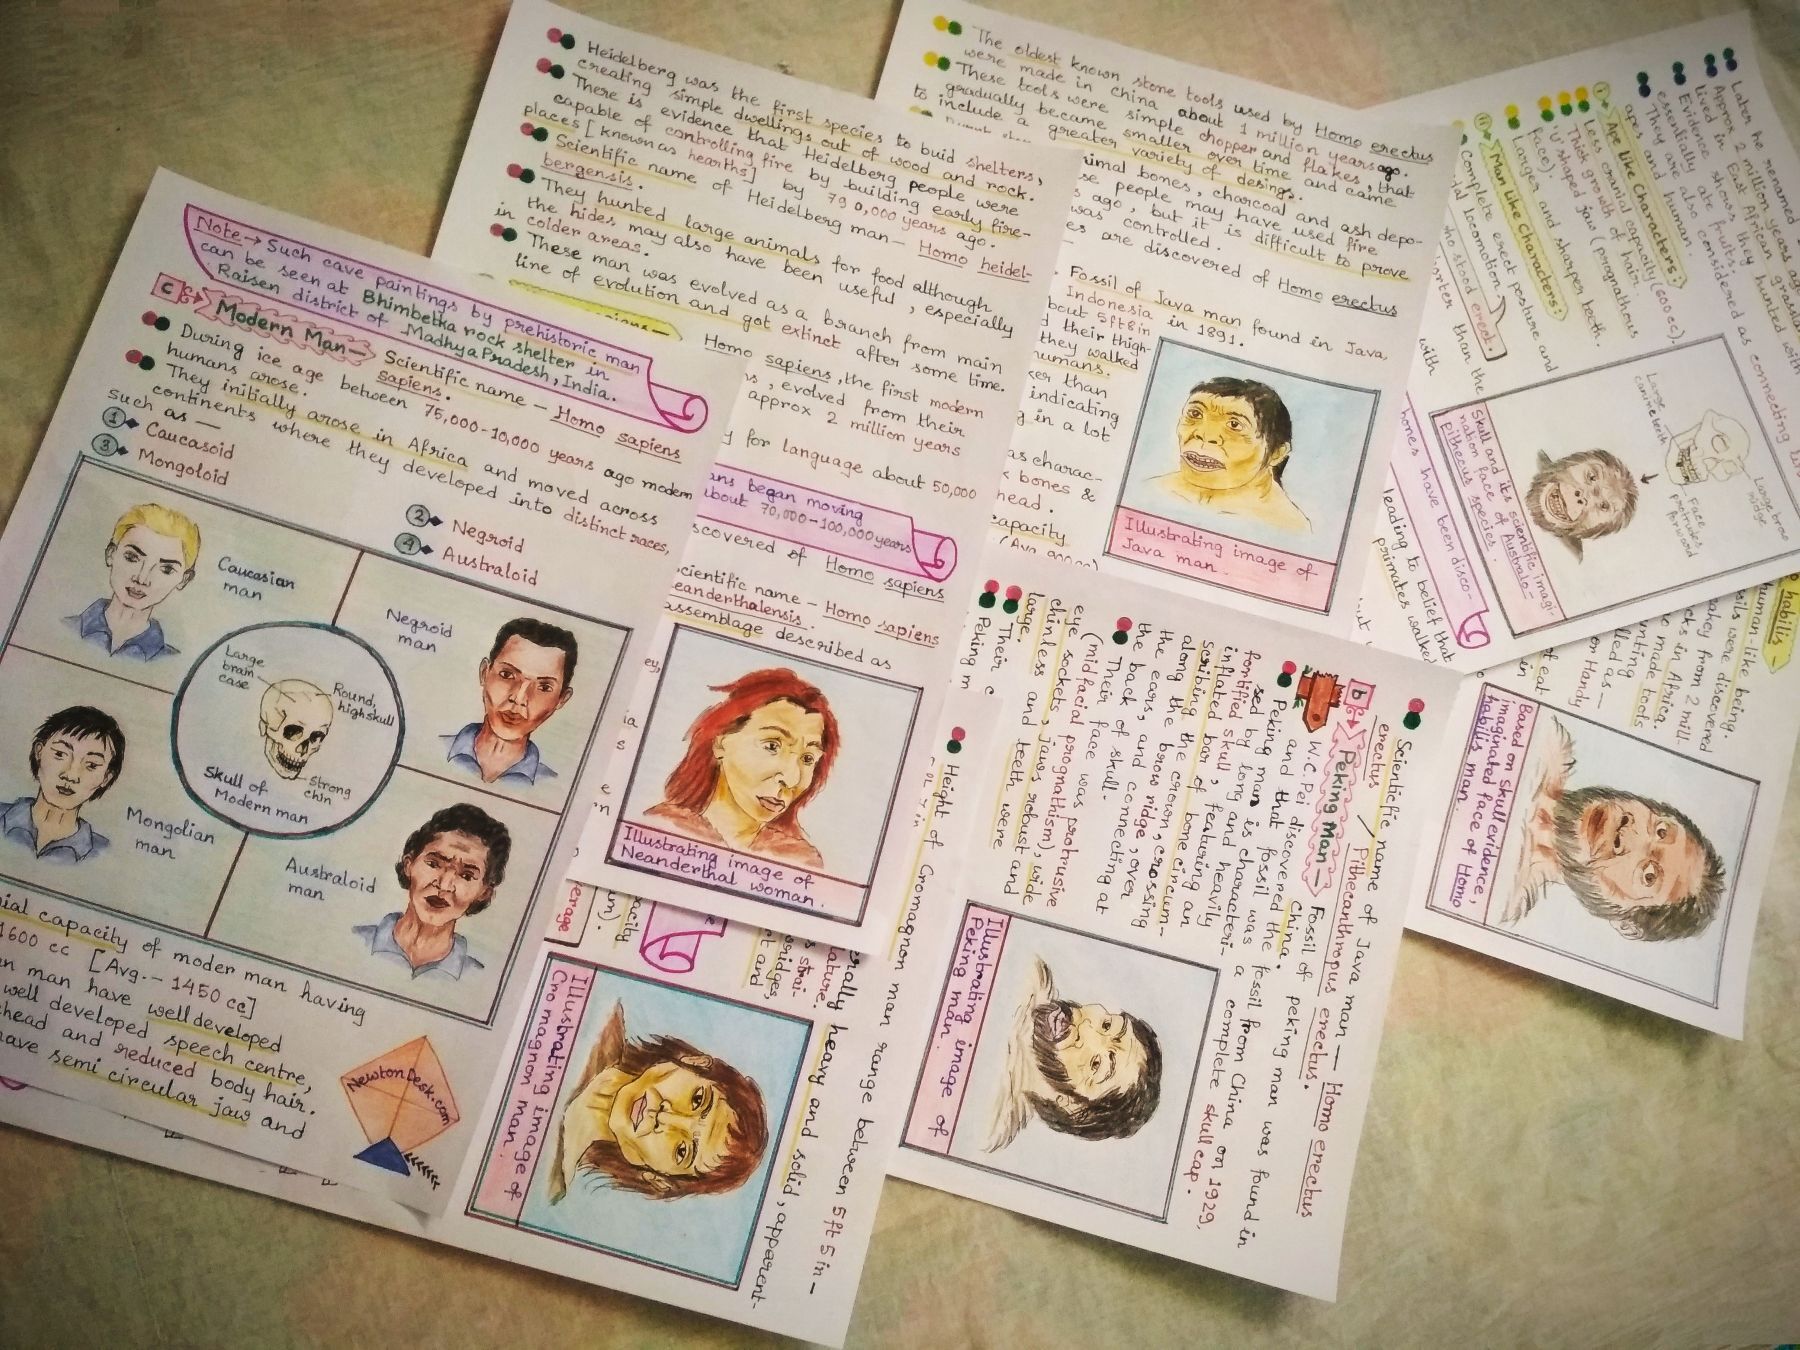 Note → Such cave paintings by prehistoric man
can be seen at Bhimbetka rock shelter in
Raisen district of Madhya Pradesh, India.
C
Modern Man — Scientific name — Homo sapiens
sapiens.
During ice age between 75,000-10,000 years ago modern
humans arose.
They initially arose in Africa and moved across
continents where they developed into distinct races,
such as —
1 Caucasoid
2 Negroid
3 Mongoloid
4 Australoid
Caucasian
man
Negroid
man
Large
brain
case
Round,
high skull
strong
chin
Skull of
Modern man
Mongolian
man
Australoid
man
nial capacity of moder man having
1600 cc [Avg. — 1450 cc]
n man have well developed
well developed speech centre,
head and reduced body hair.
have semi circular jaw and
NewtonDesk.com
Heidelberg was the first species to buid shelters,
creating simple dwellings out of wood and rock.
There is evidence that Heidelberg people were
capable of controlling fire by building early fire-
places [known as hearths] by 790,000 years ago.
Scientific name of Heidelberg man — Homo heidel-
bergensis.
They hunted large animals for food although
the hides may also have been useful, especially
in colder areas.
These man was evolved as a branch from main
line of evolution and got extinct after some time.
Homo sapiens, the first modern
, evolved from their
approx 2 million years
y for language about 50,000
ans began moving
about 70,000-100,000 years
scovered of Homo sapiens
cientific name — Homo sapiens
neanderthalensis.
assemblage described as
Illustrating image of
Neanderthal woman.
The oldest known stone tools used by Homo erectus
were made in china about 1 million years ago.
These tools were simple chopper and flakes, that
gradually became smaller over time and came
to include a greater variety of desings.
nimal bones, charcoal and ash depo-
se people may have used fire
s ago, but it is difficult to prove
was controlled.
es are discovered of Homo erectus
Fossil of Java man found in Java,
Indonesia in 1891.
bout 5ft8in
d their thigh-
they walked
humans.
ker than
indicating
g in a lot
as charac-
k bones &
head.
capacity
Illustrating image of
Java man.
Later he renamed
Approx 2 million years ago
lived in East African grassla
Evidence shows they hunted with
essentially ate fruits.
They are also considered as connecting lin
apes and human.
i Ape like Characters:
Less cranial capacity (600cc).
Thick growth of hair.
'U' shaped jaw (prognathous
face).
Larger and sharper teeth.
ii Man like Characters:
Complete erect posture and
dal locomotion
who stood erect.
horter than the
with
Large
canine teeth
Large brow
ridge
Face
protrudes
forword
Skull and it's scientific imagi-
nation face of Australo-
pithecus species.
bones have been disco-
leading to belief that
primates walked
habilis —
human-like being.
sils were discovered
eakey from 2 mill-
cks in Africa.
o made tools
nting
lled as —
or Handy
of eat
in
Based on skull evidence,
imaginated face of Homo
habilis man.
Scientific name of Java man — Homo erectus
erectus / Pithecanthropus erectus.
b
Peking Man → Fossil of peking man was found in
China.
W.C. Pei discovered the fossil from China on 1929,
and that fossil was a complete skull cap.
Peking man is characteri-
sed by long and heavily
fortified skull, featuring an
inflated bar of bone circum-
scribing the crown, crossing
along the brow ridge, over
the ears, and connecting at
the back of skull.
Their face was protrusive
(midfacial prognathism), wide
eye sockets, jaws robust and
chinless and teeth were
large.
Their c
Peking m
Illustrating image of
Peking man.
Height of Cromagnon man range between 5ft 5in —
erally heavy and solid, apparent-
ature.
s strai-
ridges,
rt and
pacity
erage
Illustrating image of
Cro magnon man.